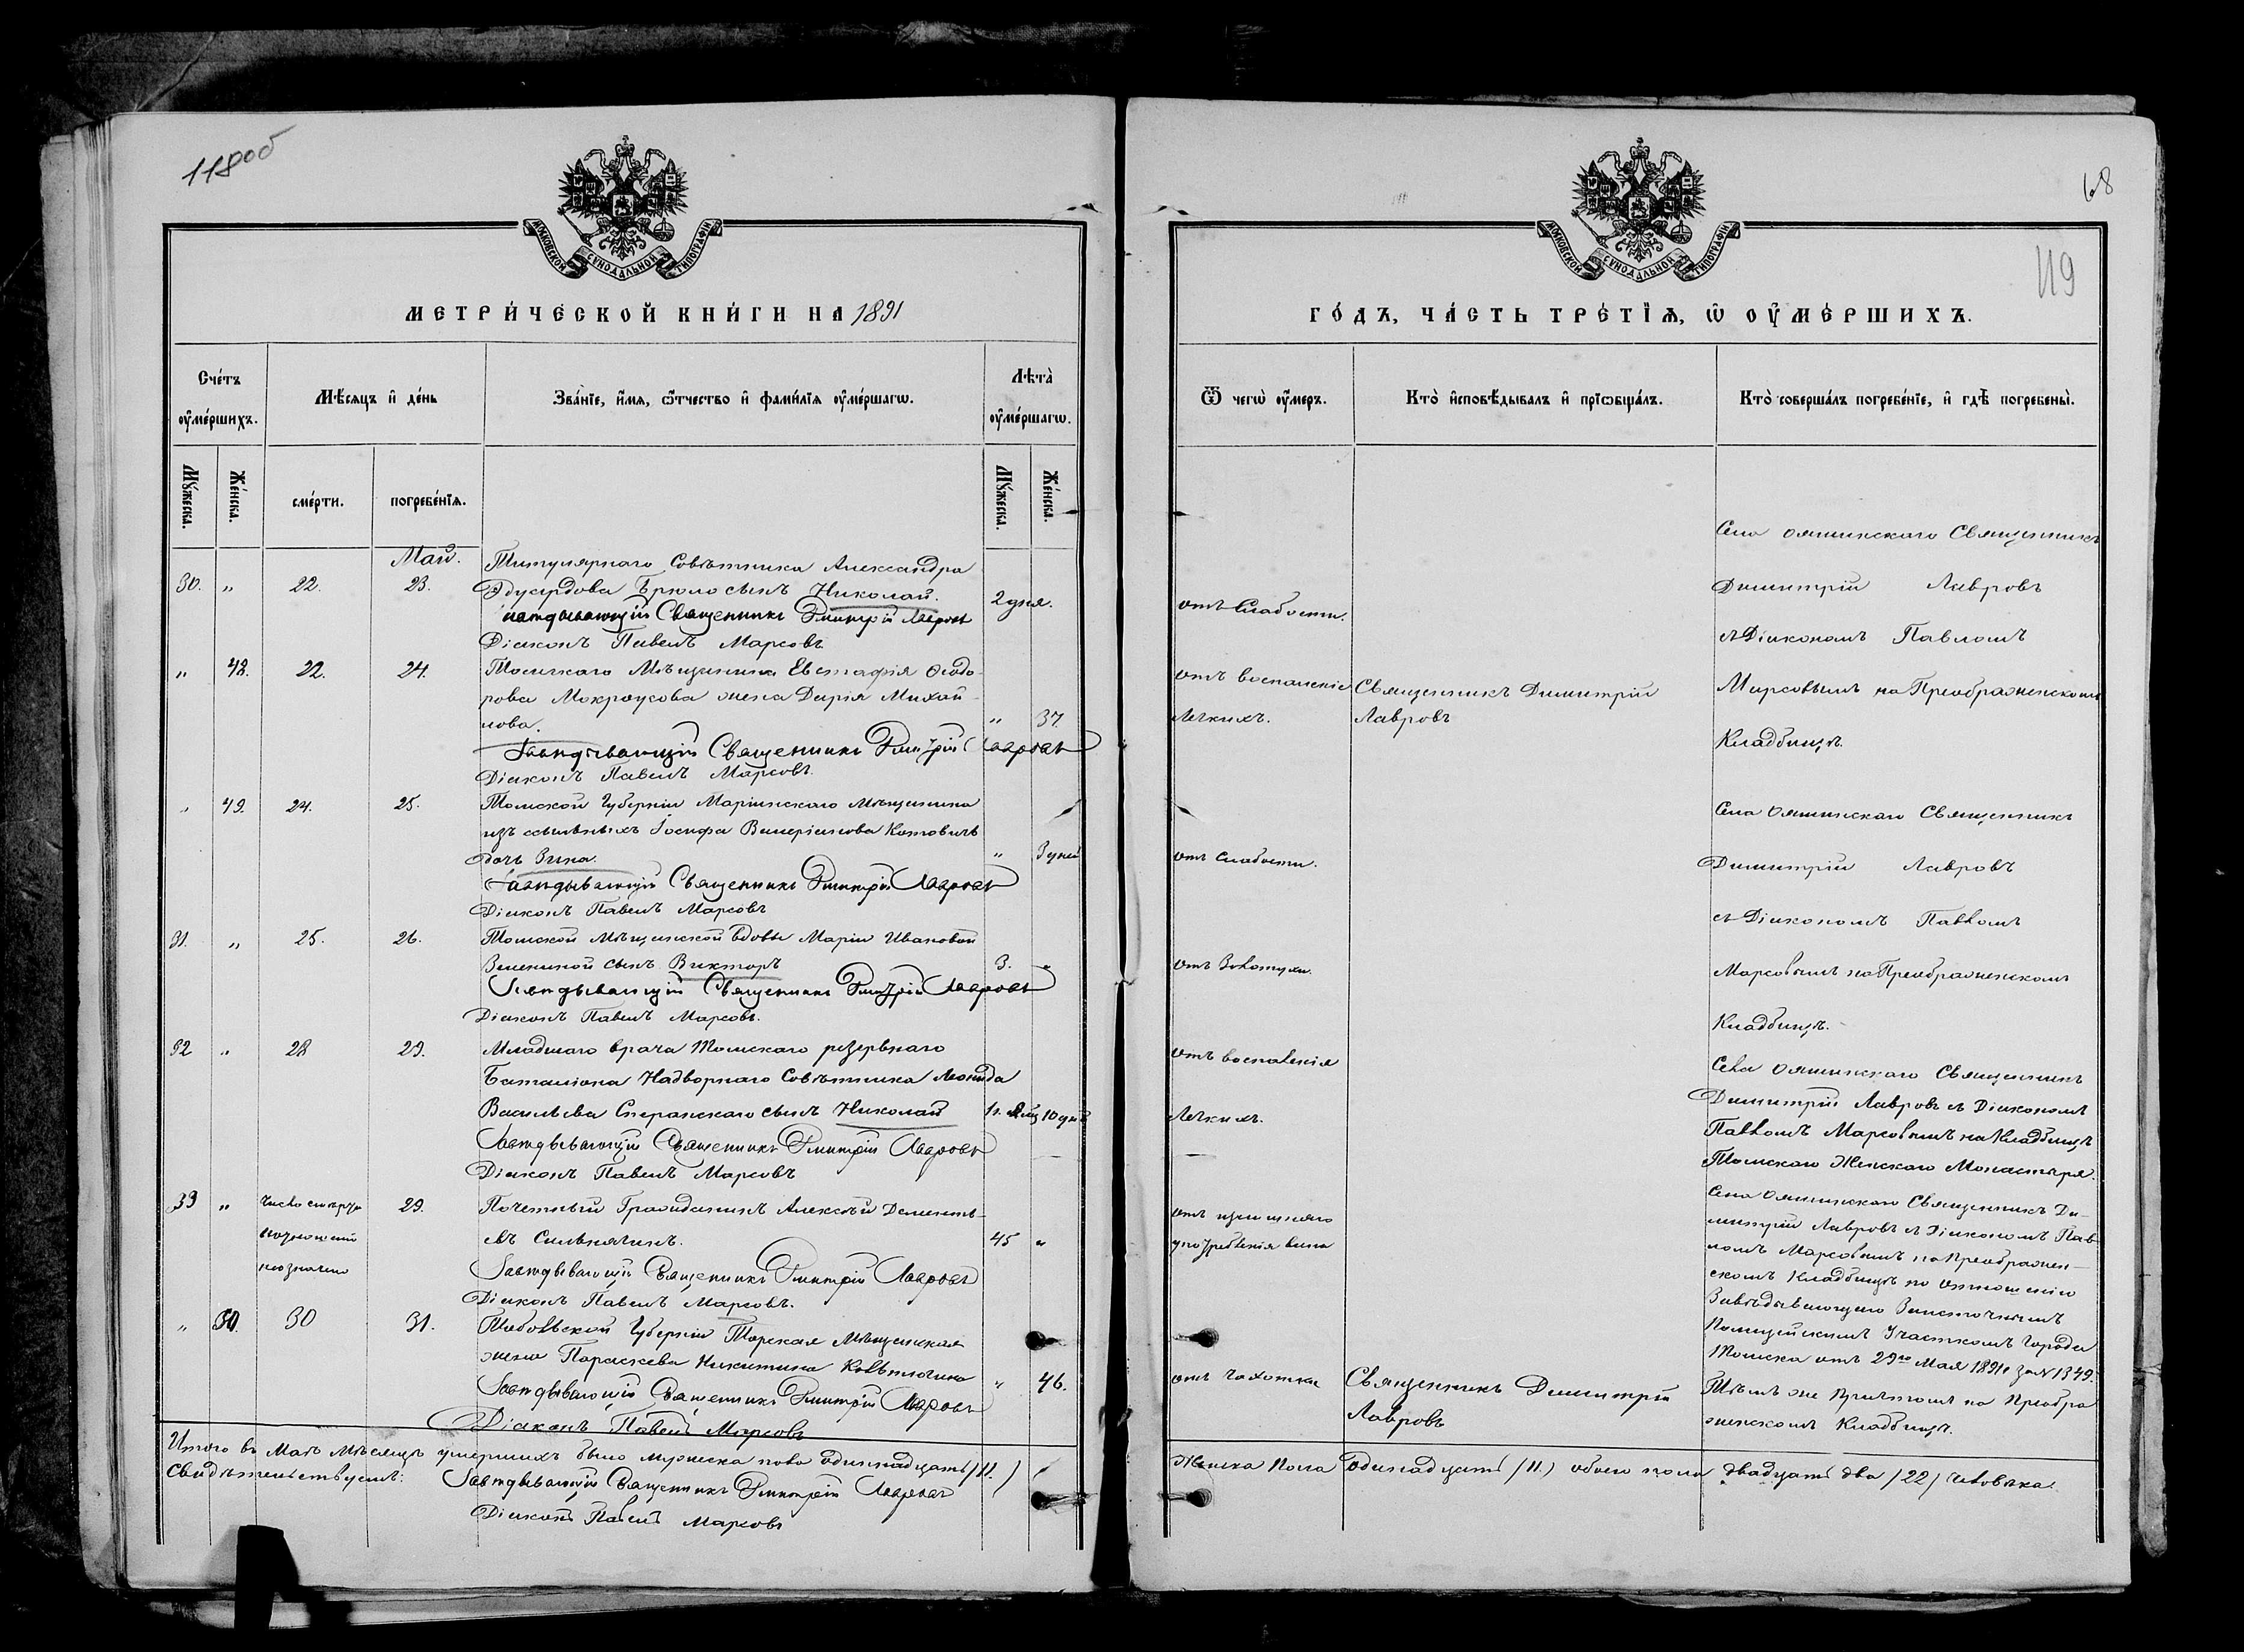 118об
МОСКОВСКОЙ СѴНОДАЛЬНОЙ ТИПОГРАФІИ
МЕТРИ́ЧЕСКОЙ КНИ́ГИ НА 1891
Сче́тъ ᲂу҆ме́ршихъ.
Мѣ́сяцъ и҆ де́нь
Зва́нїе, и҆́мѧ, ѻ҆́тчество и҆ фами́лїѧ ᲂу҆ме́ршагѡ.
Лѣ́та ᲂу҆ме́ршагѡ.
Мꙋ́жеска.
Же́нска.
сме́рти.
погребе́нїѧ.
Мꙋ́жеска.
Же́нска.
Май.
30. " 22. 23. Титулярнаго Совѣтника Александра
Эдуардова Брюло сынъ Николай. 2 дня.
Завѣдывающій Священникъ Димитрій Лавровъ
Діаконъ Павелъ Марсовъ
" 48. 22. 24. Томскаго Мѣщанина Евстафія Ѳеодо-
рова Мокроусова жена Дарія Михай-
лова. " 37.
Завѣдывающій Священникъ Димитрій Лавровъ
Діаконъ Павелъ Марсовъ.
" 49. 24. 25. Томской Губерніи Маріинскаго Мѣщанина
изъ ссыльныхъ Іосифа Валеріанова Котовичъ
дочь Зина. " 3 дней
Завѣдывающій Священникъ Димитрій Лавровъ
Діаконъ Павелъ Марсовъ
31. " 25. 26. Томской Мѣщанской вдовы Маріи Ивановой
сынъ Викторъ 3. "
Завѣдывающій Священникъ Димитрій Лавровъ
Діаконъ Павелъ Марсовъ.
32 " 28 29. Младшаго врача Томскаго резервнаго
Баталіона Надворнаго Совѣтника Леонида
Васильева Сперанскаго сынъ Николай 1 г. 10 дней
Завѣдывающій Священникъ Димитрій Лавровъ
Діаконъ Павелъ Марсовъ
33 " Число смерти 29. Почетный Гражданинъ Алексѣй Дементь-
евъ 45 "
неозначено
Завѣдывающій Священникъ Димитрій Лавровъ
Діаконъ Павелъ Марсовъ.
" 50. 30 31. Тобольской Губерніи Тарская Мѣщанская
жена Параскева Никитина " 46.
Завѣдывающій Священникъ Димитрій Лавровъ
Діаконъ Павелъ Марсовъ
Итого въ Маѣ Мѣсяцѣ умершихъ было мужеска пола одиннадцать (11.)
Свидѣтельствуемъ: Завѣдывающій Священникъ Димитрій Лавровъ
Діаконъ Павелъ Марсовъ
68
119
МОСКОВСКОЙ СѴНОДАЛЬНОЙ ТИПОГРАФІИ
ГО́ДЪ, ЧА́СТЬ ТРЕ́ТЇѦ, Ѡ҆ ОУ҆МЕ́РШИХЪ.
Ѿ чегѡ̀ ᲂу҆́меръ.
Кто̀ и҆сповѣ́дывалъ и҆ прїѡбща́лъ.
Кто̀ соверша́лъ погребе́нїе, и҆ гдѣ̀ погребены̀.
отъ слабости.
Села Ояшинскаго Священникъ
Димитрій Лавровъ
съ Діакономъ Павломъ
Марсовымъ на Преображенскомъ
Кладбищѣ.
отъ воспаленіе
Легкихъ.
Священникъ Димитрій
Лавровъ
отъ слабости.
Села Ояшинскаго Священникъ
Димитрій Лавровъ
съ Діакономъ Павломъ
Марсовымъ на Преображенскомъ
Кладбищѣ.
отъ Золотухи.
отъ воспаленія
Легкихъ.
Села Ояшинскаго Священникъ
Димитрій Лавровъ съ Діакономъ
Павломъ Марсовымъ на Кладбищѣ
Томскаго Женскаго Монастыря.
отъ излишняго
употребленія вина
Села Ояшинскаго Священникъ Ди-
митрій Лавровъ съ Діакономъ Пав-
ломъ Марсовымъ на Преображен-
скомъ Кладбищѣ по отношенію
Завѣдывающаго Заисточнымъ
Полицейскимъ Участкомъ города
Томска отъ 29го Мая 1891г за N 1349.
отъ чахотки
Священникъ Димитрій
Лавровъ
Тѣмъ же причтомъ на Преобра
женскомъ Кладбищѣ.
Женска пола одинадцать (11.) обоего пола двадцать два (22) человѣка.